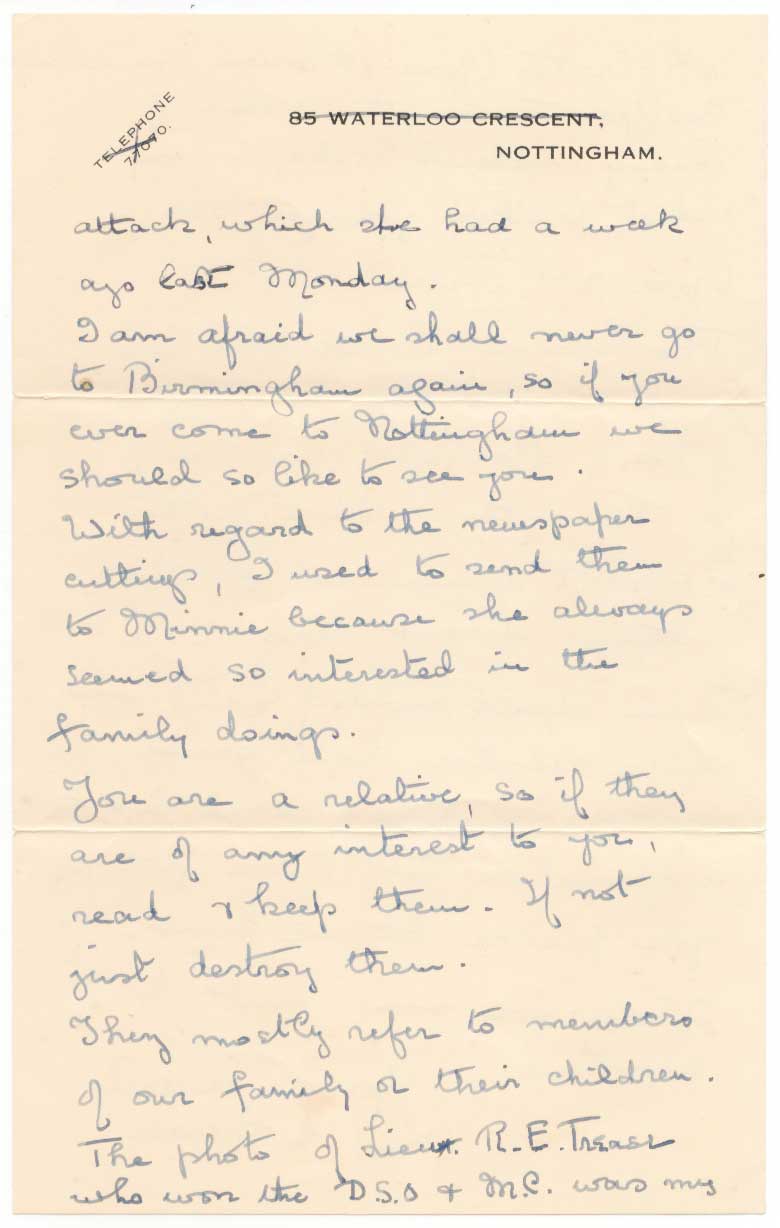 TELEPHONE
77070.
85 WATERLOO CRESCENT,
NOTTINGHAM.
attack, which she had a week
ago last Monday.
I am afraid we shall never go
to Birmingham again, so if you
ever come to Nottingham we
should so like to see you.
With regard to the newspaper
cuttings, I used to send them
to Minnie because she always
seemed so interested in the
family doings.
You are a relative, so if they
are of any interest to you,
read & keep them. If not
just destroy them.
They mostly refer to members
of our family or their children.
The photo of Lieut. R.E. Trease
who won the D.S.O & M.C. was my